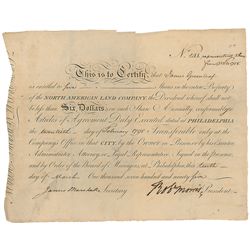 This is to Certify that James Greenleaf
is entitled to five Shares in the entire Property
of the NORTH AMERICAN LAND COMPANY, the Dividend whereof shall not
be less than Six Dollars on each Share Annually conformably to
Articles of Agreement Duly Executed dated at PHILADELPHIA
the twentieth day of February 1795 Transferable only at the
Company's Office in that CITY by the Owner in Person, or by his Executor
Administrator, Attorney, or Legal Representative. Signed in the presence
and by Order of the Board of Managers, at Philadelphia this tenth
day of March One thousand seven hundred and ninety five
James Marshall Secretary Robt Morris President